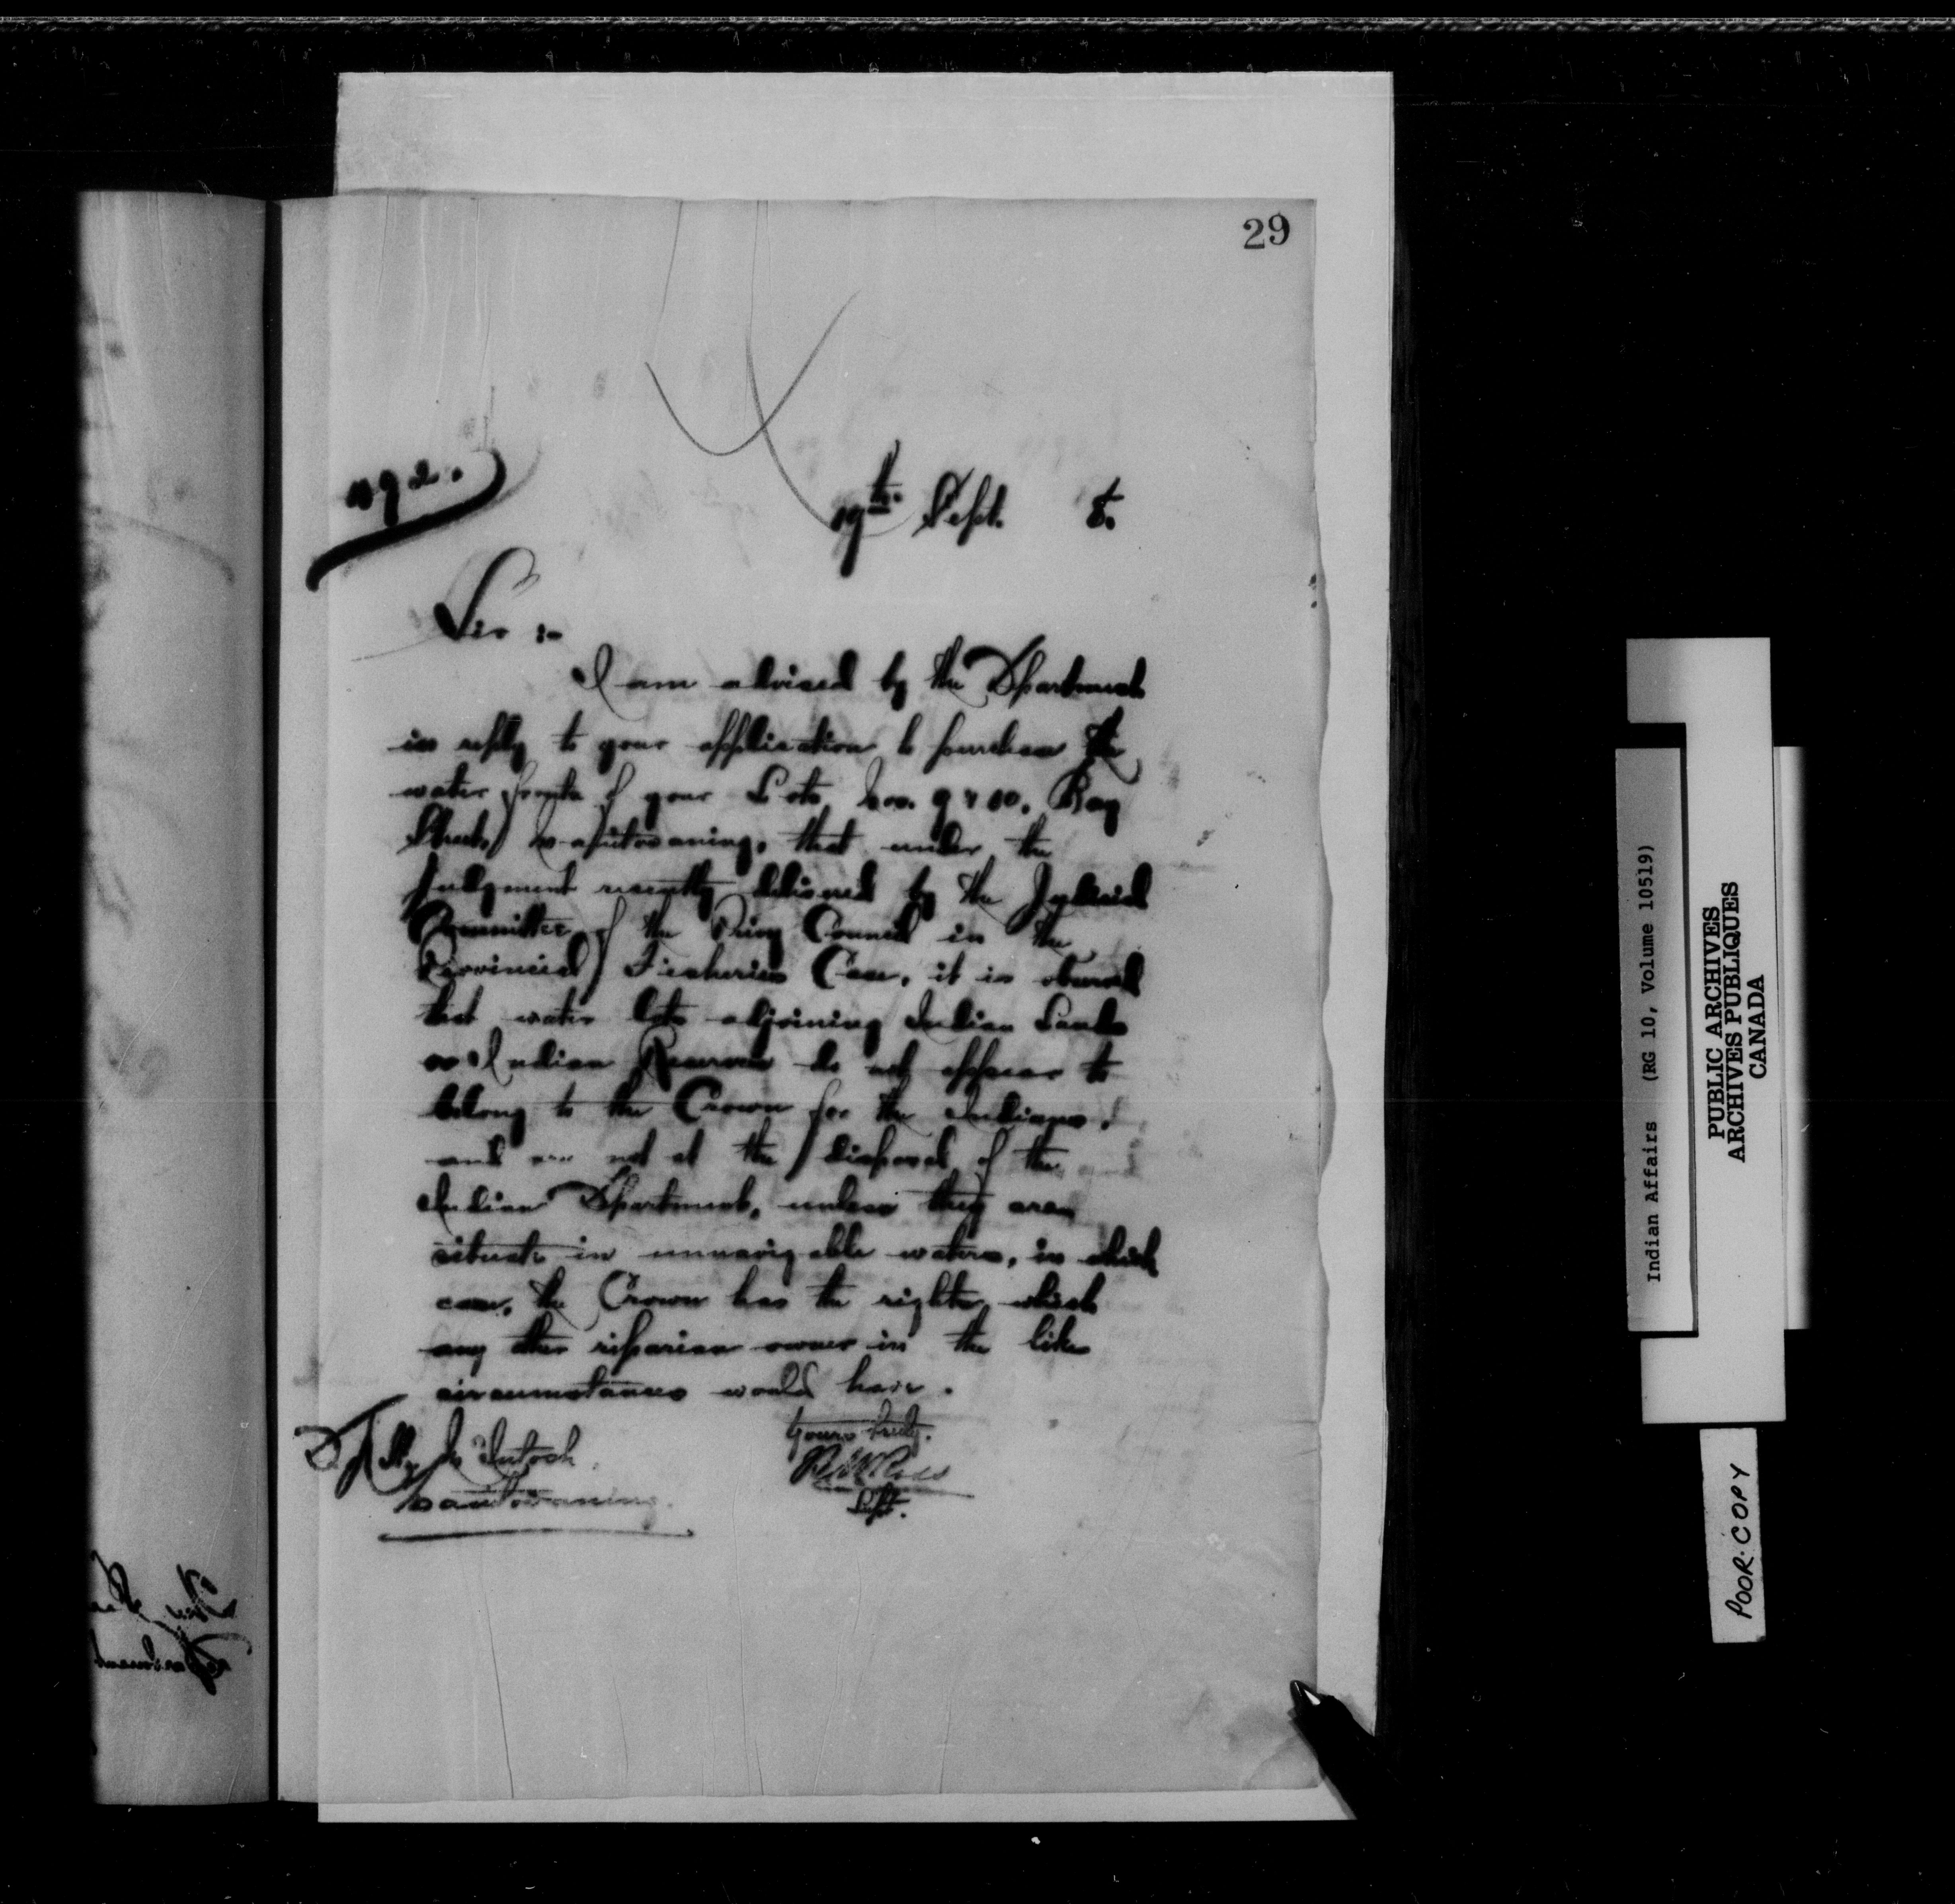 29
192.
19th Sept. 8.
Sir :-
I am advised by the Department
in reply to your application to purchase the
water fronts of your Lots Nos. 9 & 10. Bay
Street, Manitowaning, that under the
judgment recently delivered by the Judicial
Committee of the Privy Council in the
Provincial Fisheries Case, it is observed
that water lots adjoining Indian Lands
or Indian Reserves do not appear to
belong to the Crown for the Indians,
and are not at the disposal of the
Indian Department, unless they are
situate in unnavigable waters, in which
case, the Crown has the rights which
any other riparian owner in the like
circumstances would have.
Yours truly.
Ross
Supt.
McIntosh
Manitowaning.
Indian Affairs (RG 10, Volume 10519)
PUBLIC ARCHIVES
ARCHIVES PUBLIQUES
CANADA
POOR COPY